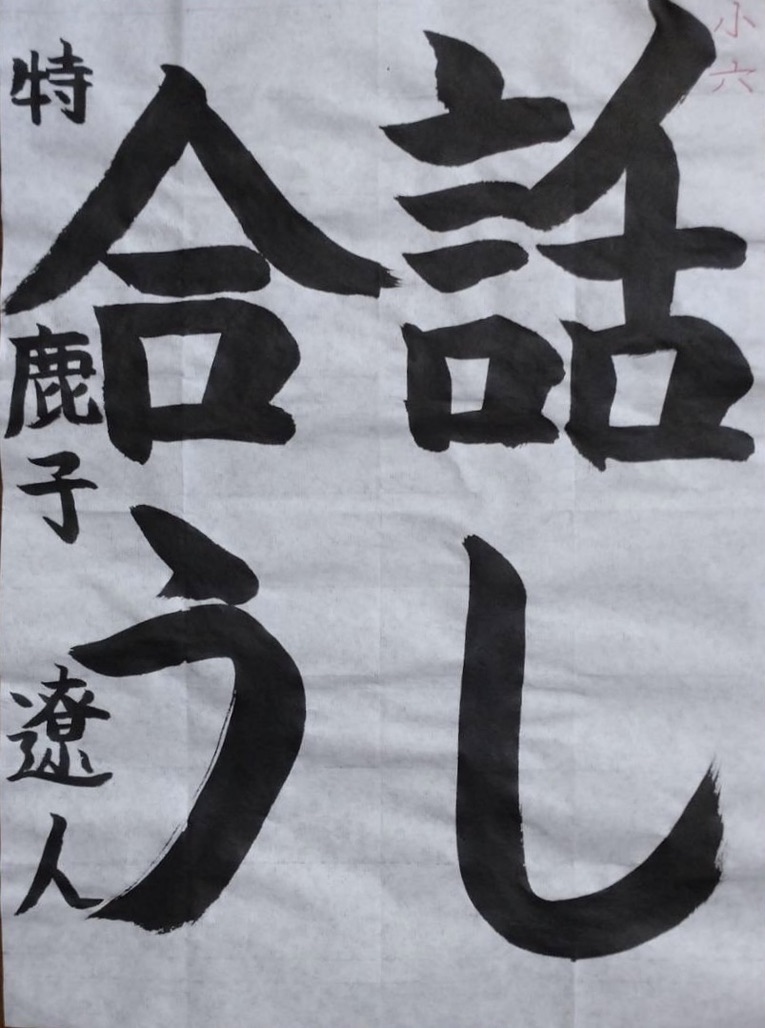 小六
話し
合う
特 鹿子 遼人